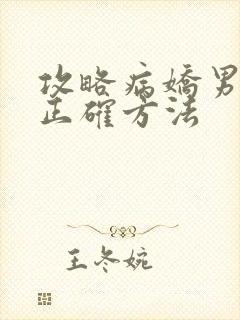 攻略病嬌男
正確方法
王冬婉